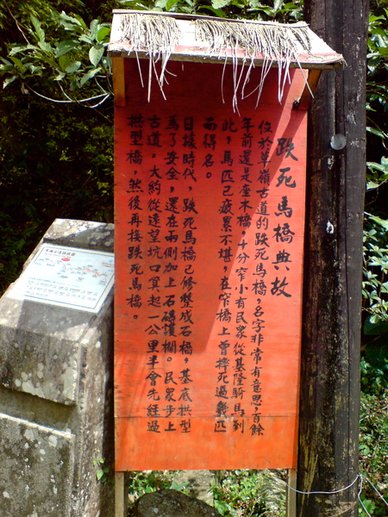 跌死馬橋典故
位於草嶺古道的跌死馬橋,名字非常有意思,百餘
年前還是座木橋,十分窄小有民眾從基隆騎馬到
此,馬匹已疲累不堪,在窄橋上曾摔死過數匹
而得名。
日據時代,跌死馬橋已修整成石橋,基底拱型
為了安全,還在兩側加上石礅護欄。民眾步上
古道,大約從遠望坑口算起一公里半會先經過
拱型橋,然後再接跌死馬橋。